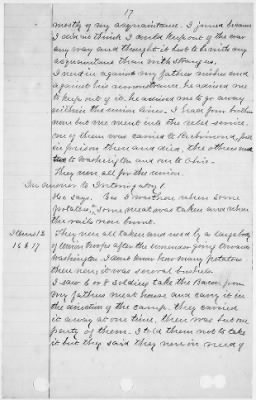 17
mostly of my acquaintance. I joined because
I did not think I could keep out of the war
any way and thought it best to be with my
acquaintance than with strangers.
I went in against my fathers wishes and
against his remonstrance, he advised me
to keep out of it. he advised me to go away
within the union lines. I had four brothers
none but one went into the rebel service.
one of them was carried to Richmond, put
in prison there and died, the others went
to Washington and one to Ohio.
They were all for the union.
In answer to Interrogatory 1
He says. Yes I was there when some
potatoes, some meat was taken and when
the rails were burned.
Items 12
16 & 17
They were all taken and used by a large body
of Union troops after the command going toward
Washington. I dont know how many potatoes
there were, it was several bushels.
I saw 6 or 8 soldiers take the bacon from
my fathers meat house and carry it in
the direction of the camp. they carried
it away at one time, there was but one
party of them. I told them not to take
it but they said they were in need of